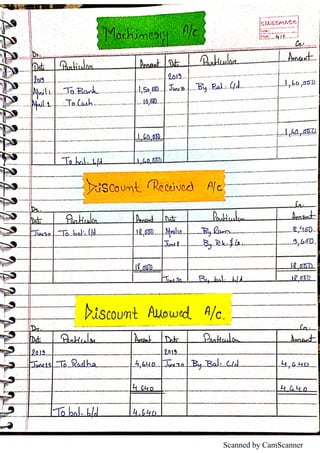 classmate
Machinery A/c
Dr. Cr.
Date Particular Amount Date Particular Amount
2019 2019
April 1 To Bank 1,50,000 June 30 By Bal. C/d 1,60,000
April 2 To Cash 10,000
1,60,000 1,60,000
To bal. b/d 1,60,000
Discount Received A/c
Dr. Cr.
Date Particular Amount Date Particular Amount
June 30 To bal. C/d 18,000 April 10 By Ram
June 8 By
18,000 18,000
June 30 By bal. b/d 18,000
Discount Allowed A/c.
Dr. Cr.
Date Particular Amount Date Particular Amount
2019 2019
June 25 To Radha 4,640 June 30 By Bal. C/d 4,640
4,640 4,640
To bal. b/d 4,640
Scanned by CamScanner